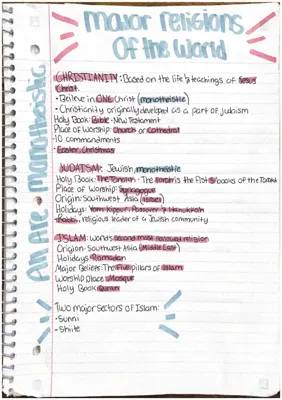 Major religions
Of the World
All Are monotheastic
CHRISTIANITY: Based on the life & teachings of Jesus
Christ.
• Believe in ONE Christ (monotheistic)
• Christianity originally developed as a part of judaism
Holy Book: Bible - New Testament
Place of Worship: Church or Cathedral
-10 commandments
- Easter, Christmas
JUDAISM: Jewish, monotheistic
Holy Book: The Tanakh - The torah is the first 5 books of the Tanakh
Place of Worship: Synagogue
Origin: Southwest Asia (Israel)
Holidays: Yom Kippur, Passover & Hanukkah
- Rabbi, religious leader of a Jewish community
ISLAM: Worlds second most followed religion
Origion: Southwest Asia (Middle East)
Holidays: Ramadan
Major Beliefs: The Five pillars of Islam
Worship place: Mosque
Holy Book: Quran
Two major Sectors of Islam:
- Sunni
- Shiite